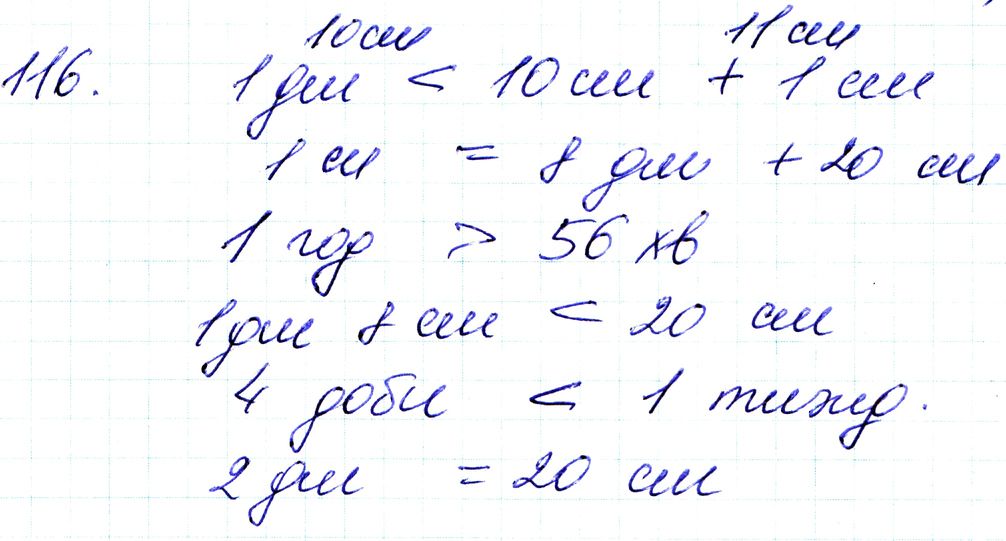 10см 11см
116. 1дм < 10см + 1см
1см = 8дм + 20см
1 год > 56 хв
1дм 8см < 20 см
4 доби < 1 тижд.
2дм = 20 см